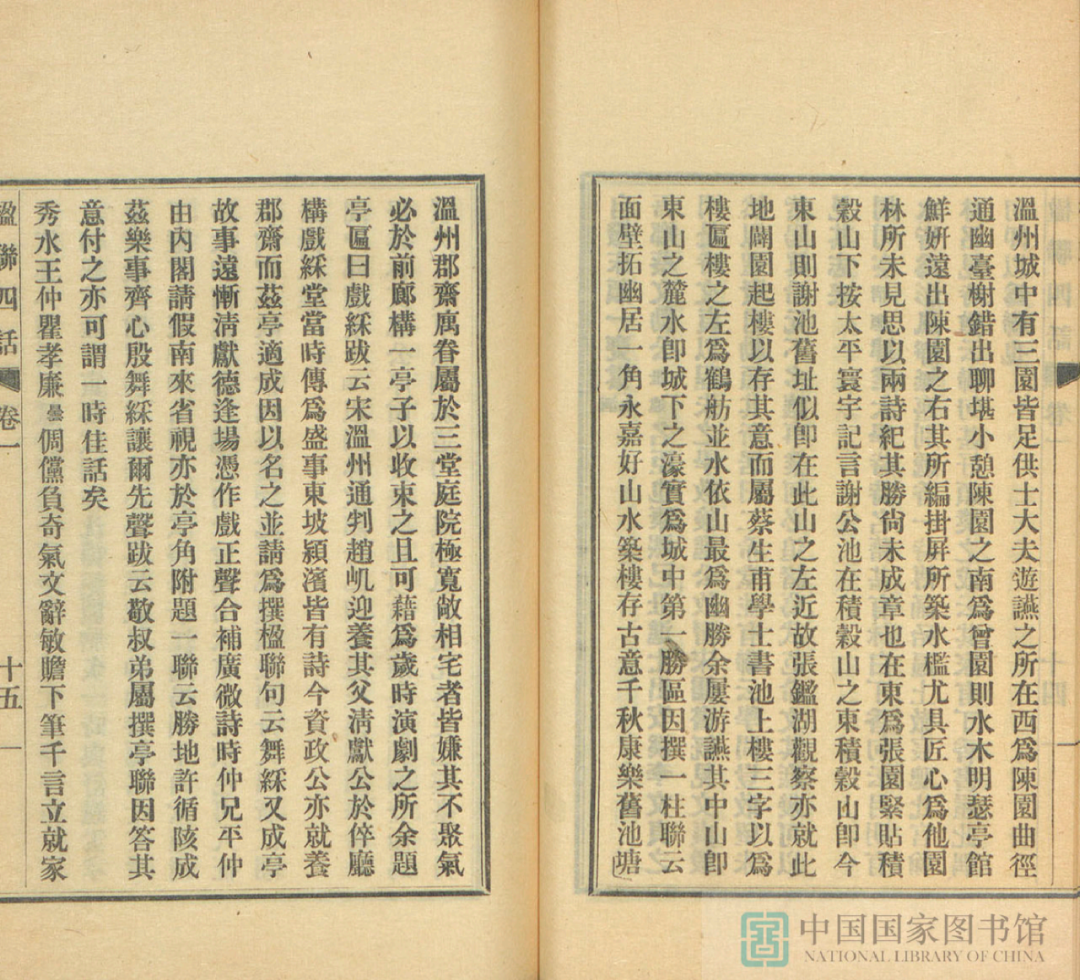 溫州城中有三園皆足供士大夫遊讌之所在西爲陳園曲徑
通幽臺榭錯出聊堪小憩陳園之南爲曾園則水木明瑟亭館
鮮姸遠出陳園之右其所編掛屏所築水檻尤具匠心爲他園
林所未見思以兩詩紀其勝尙未成章也在東爲張園緊貼積
穀山下按太平寰宇記言謝公池在積穀山之東積穀山卽今
東山則謝池舊址似卽在此山之左近故張鑑湖觀察亦就此
地闢園起樓以存其意而屬蔡生甫學士書池上樓三字以爲
樓匾樓之左爲鶴舫並水依山最爲幽勝余屢游讌其中山卽
東山之麓水卽城下之濠實爲城中第一勝區因撰一柱聯云
面壁拓幽居一角永嘉好山水築樓存古意千秋康樂舊池塘
溫州郡齋寓眷屬於三堂庭院極寬敞相宅者皆嫌其不聚氣
必於前廊構一亭子以收束之且可藉爲歲時演劇之所余題
亭匾曰戲綵跋云宋溫州通判趙㞦迎養其父淸獻公於倅廳
構戲綵堂當時傳爲盛事東坡潁濱皆有詩今資政公亦就養
郡齋而茲亭適成因以名之並請爲撰楹聯句云舞綵又成亭
故事遠慚淸獻德逢場憑作戲正聲合補廣微詩時仲兄平仲
由內閣請假南來省視亦於亭角附題一聯云勝地許循陔成
茲樂事齊心殷舞綵讓爾先聲跋云敬叔弟屬撰亭聯因答其
意付之亦可謂一時佳話矣
秀水王仲瞿孝廉曇倜儻負奇氣文辭敏贍下筆千言立就家
楹聯四話 卷一 十五
中国国家图书馆
NATIONAL LIBRARY OF CHINA